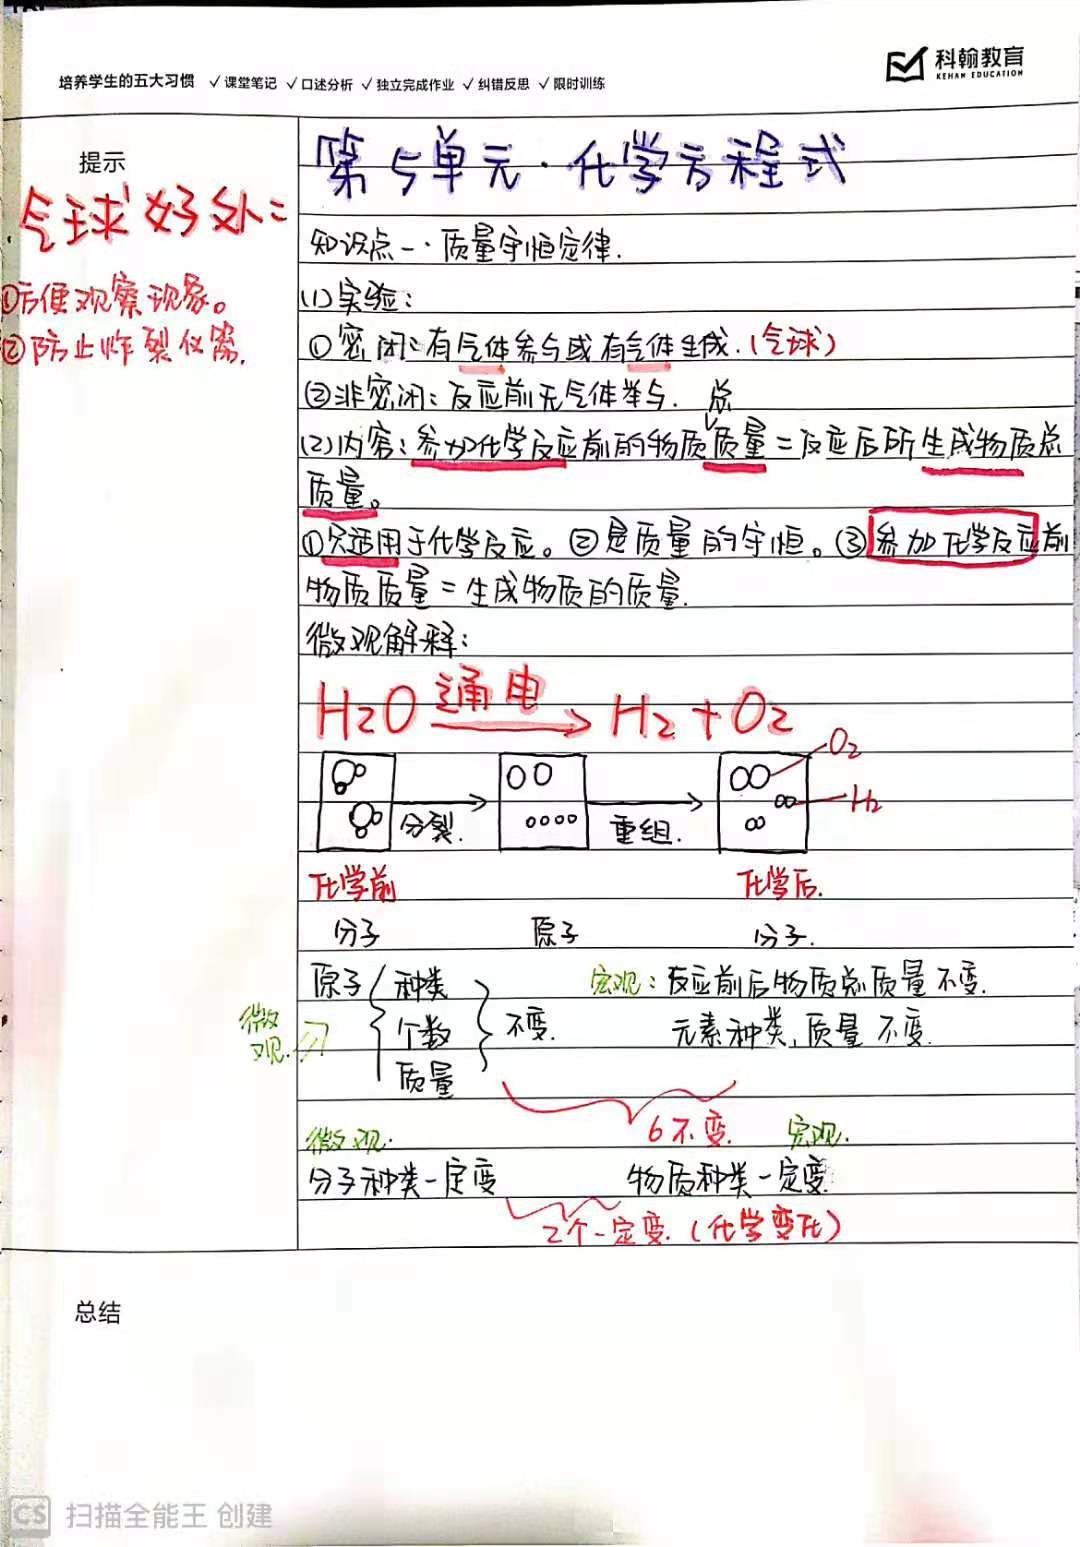 培养学生的五大习惯 ✓课堂笔记 ✓口述分析 ✓独立完成作业 ✓纠错反思 ✓限时训练
科翰教育
KEHAN EDUCATION
提示
气球好处:
①方便观察现象。
②防止炸裂仪器.
第5单元·化学方程式
知识点一·质量守恒定律.
(1)实验:
①密闭:有气体参与或有气体生成.(气球)
②非密闭:反应前无气体参与.
(2)内容:参加化学反应前的物质总质量=反应后所生成物质总
质量。
①只适用于化学反应。②是质量的守恒。③参加化学反应前
物质质量=生成物质的质量.
微观解释:
H2O 通电 H2+O2
O2
H2
分裂. 重组.
化学前 化学后.
分子 原子 分子.
原子 种类 宏观:反应前后物质总质量不变.
微观. 个数 不变. 元素种类,质量不变.
质量
微观. 6不变. 宏观.
分子种类一定变 物质种类一定变.
2个一定变.(化学变化)
总结
CS 扫描全能王 创建